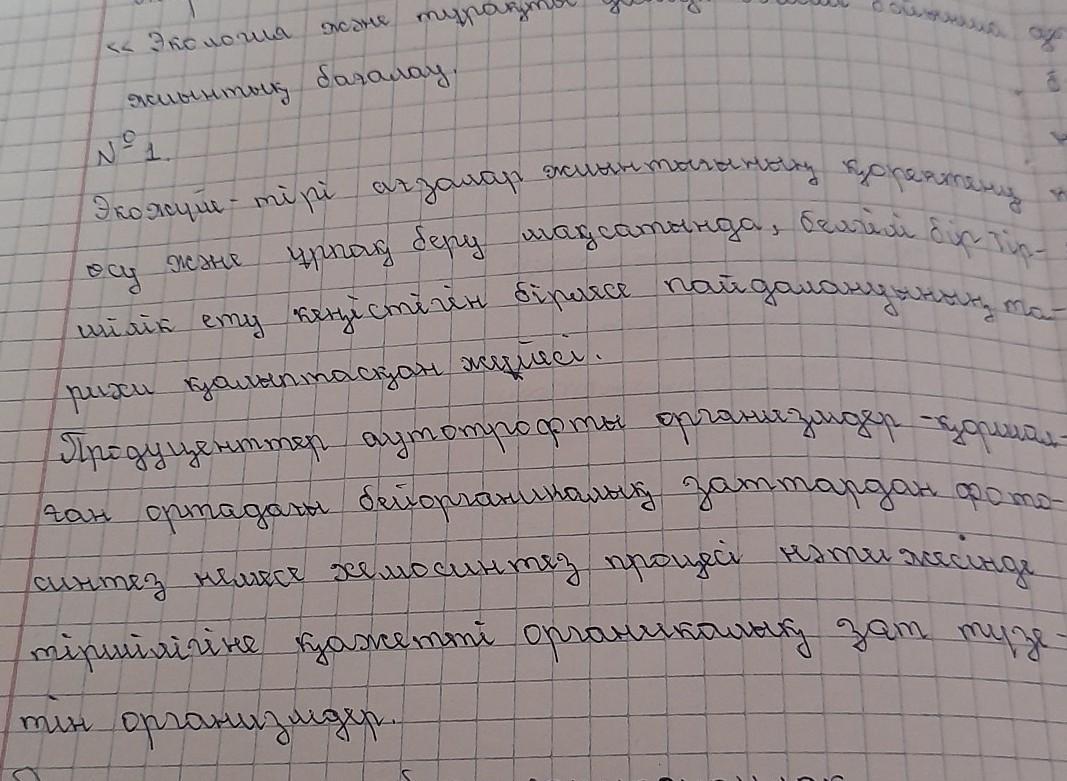 << Экология және тұрақты даму бойынша
жиынтық бағалау.
№ 1.
Экожүйе - тірі ағзалар жиынтығының қоректену
өсу және ұрпақ беру мақсатында, белгілі бір тір-
шілік ету кеңістігін бірлесе пайдалануының та-
рихи қалыптасқан жүйесі.
Продуценттер аутотрофты организмдер - қоршал-
ған ортадағы бейорганикалық заттардан фото-
синтез немесе хемосинтез процесі нәтижесінде
тіршілігіне қажетті органикалық зат түзе-
тін организмдер.